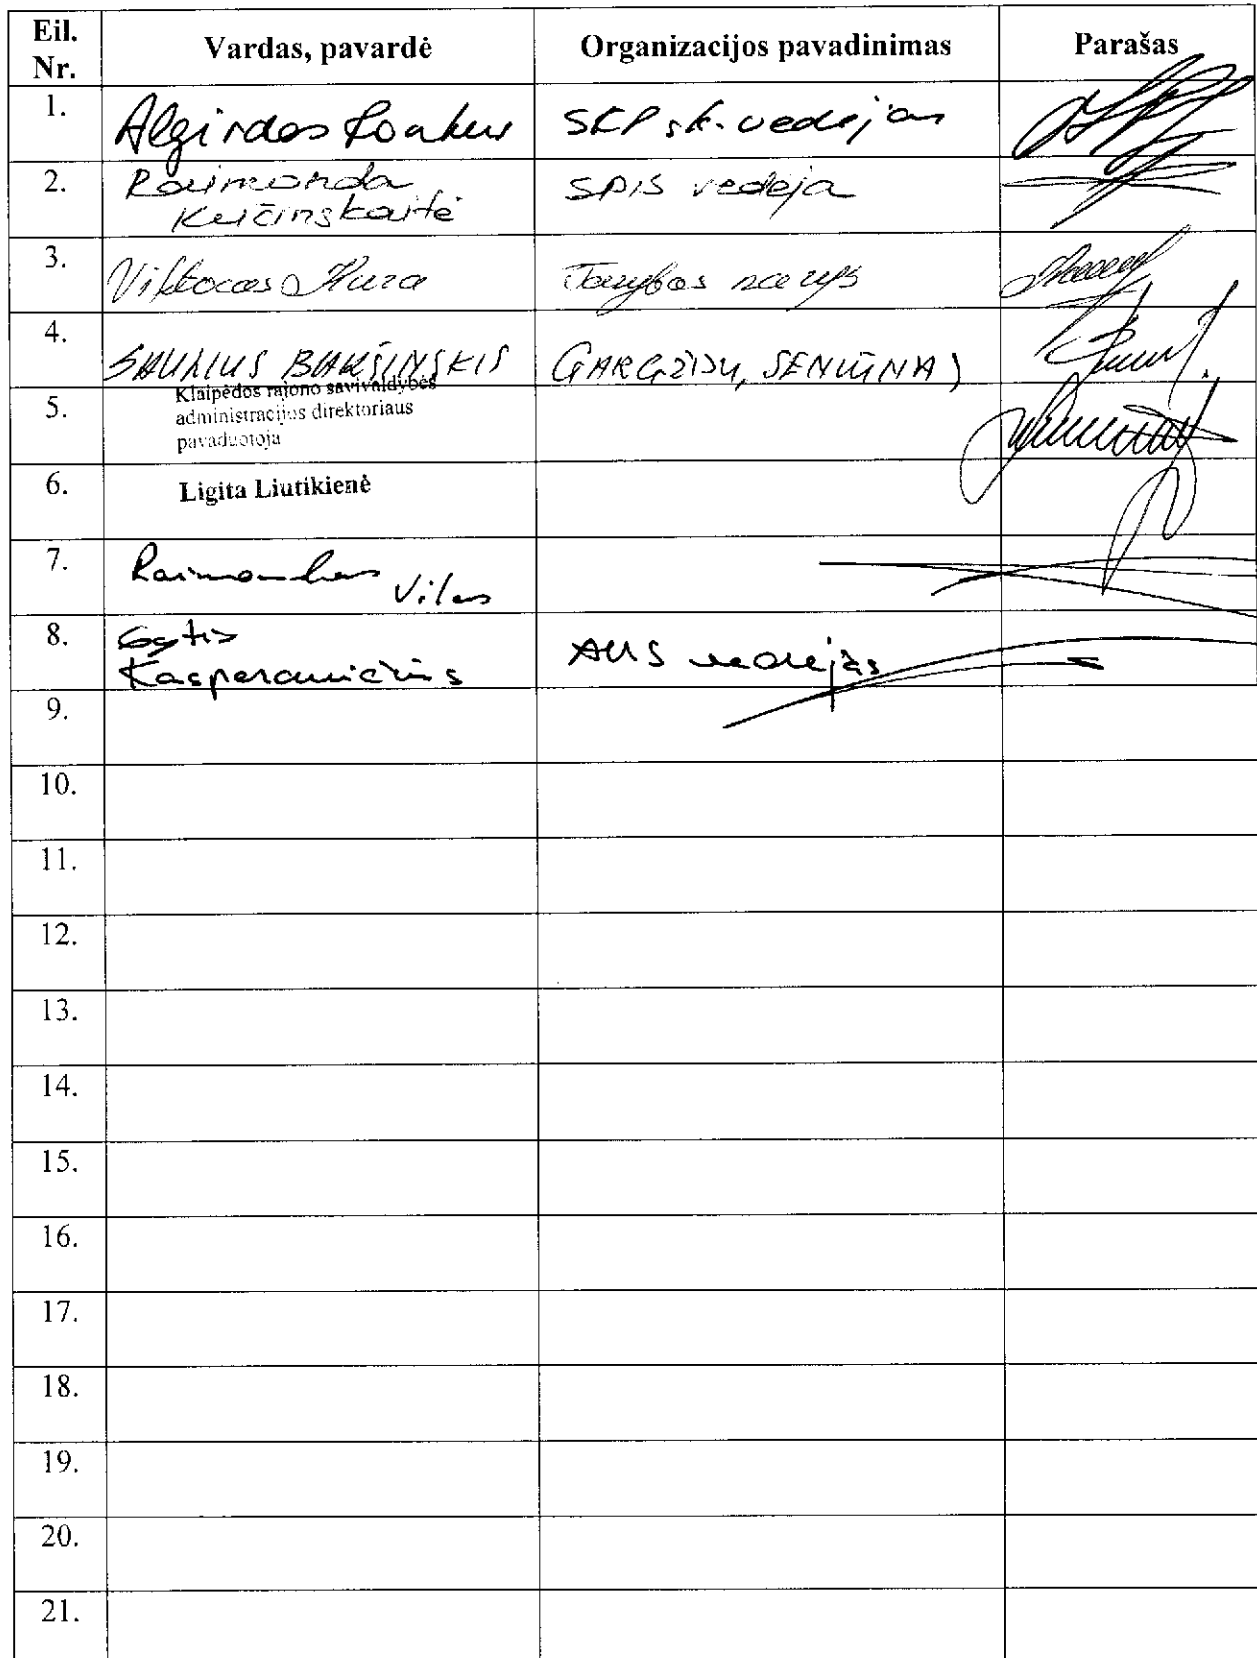 Eil. Nr. Vardas, pavardė Organizacijos pavadinimas Parašas
1. Algirdas SKP sk. vedėjas
2. Raimonda SPIS vedėja
Kučinskaitė
3. Viktoras Kura Tarybos narys
4. SAULIUS BAKŠINSKIS GARGŽDŲ SENIŪNAS
Klaipėdos rajono savivaldybės
5. administracijos direktoriaus
pavaduotoja
6. Ligita Liutikienė
7. Raimondas
8. Gytis
Kasperavičius AUS vedėjas
9.
10.
11.
12.
13.
14.
15.
16.
17.
18.
19.
20.
21.